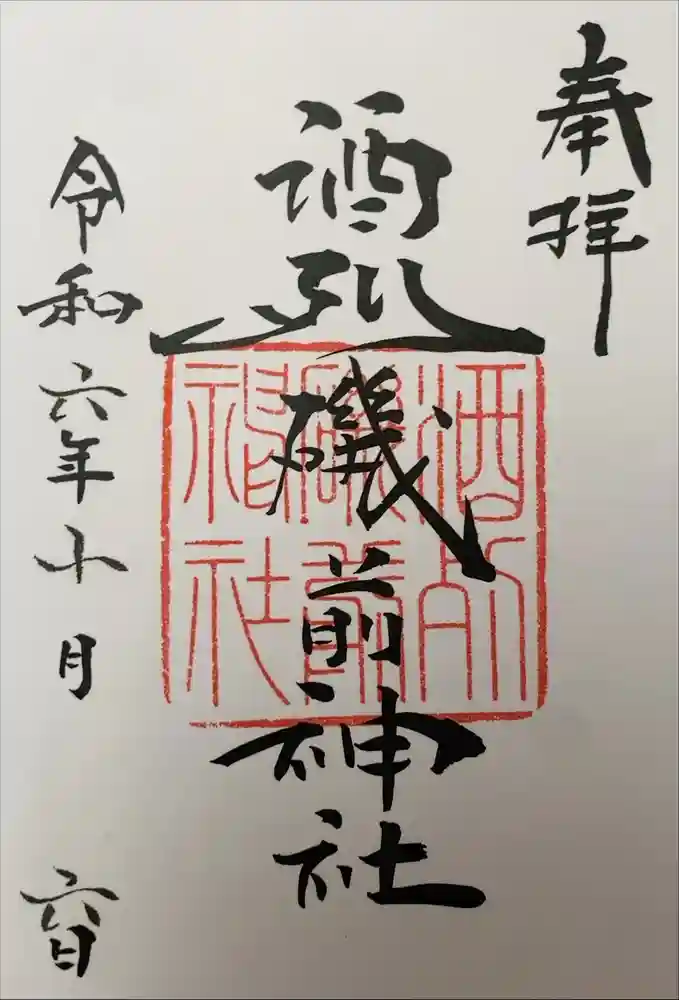 奉拝
酒列磯前神社
酒列磯前神社
令和六年十月六日